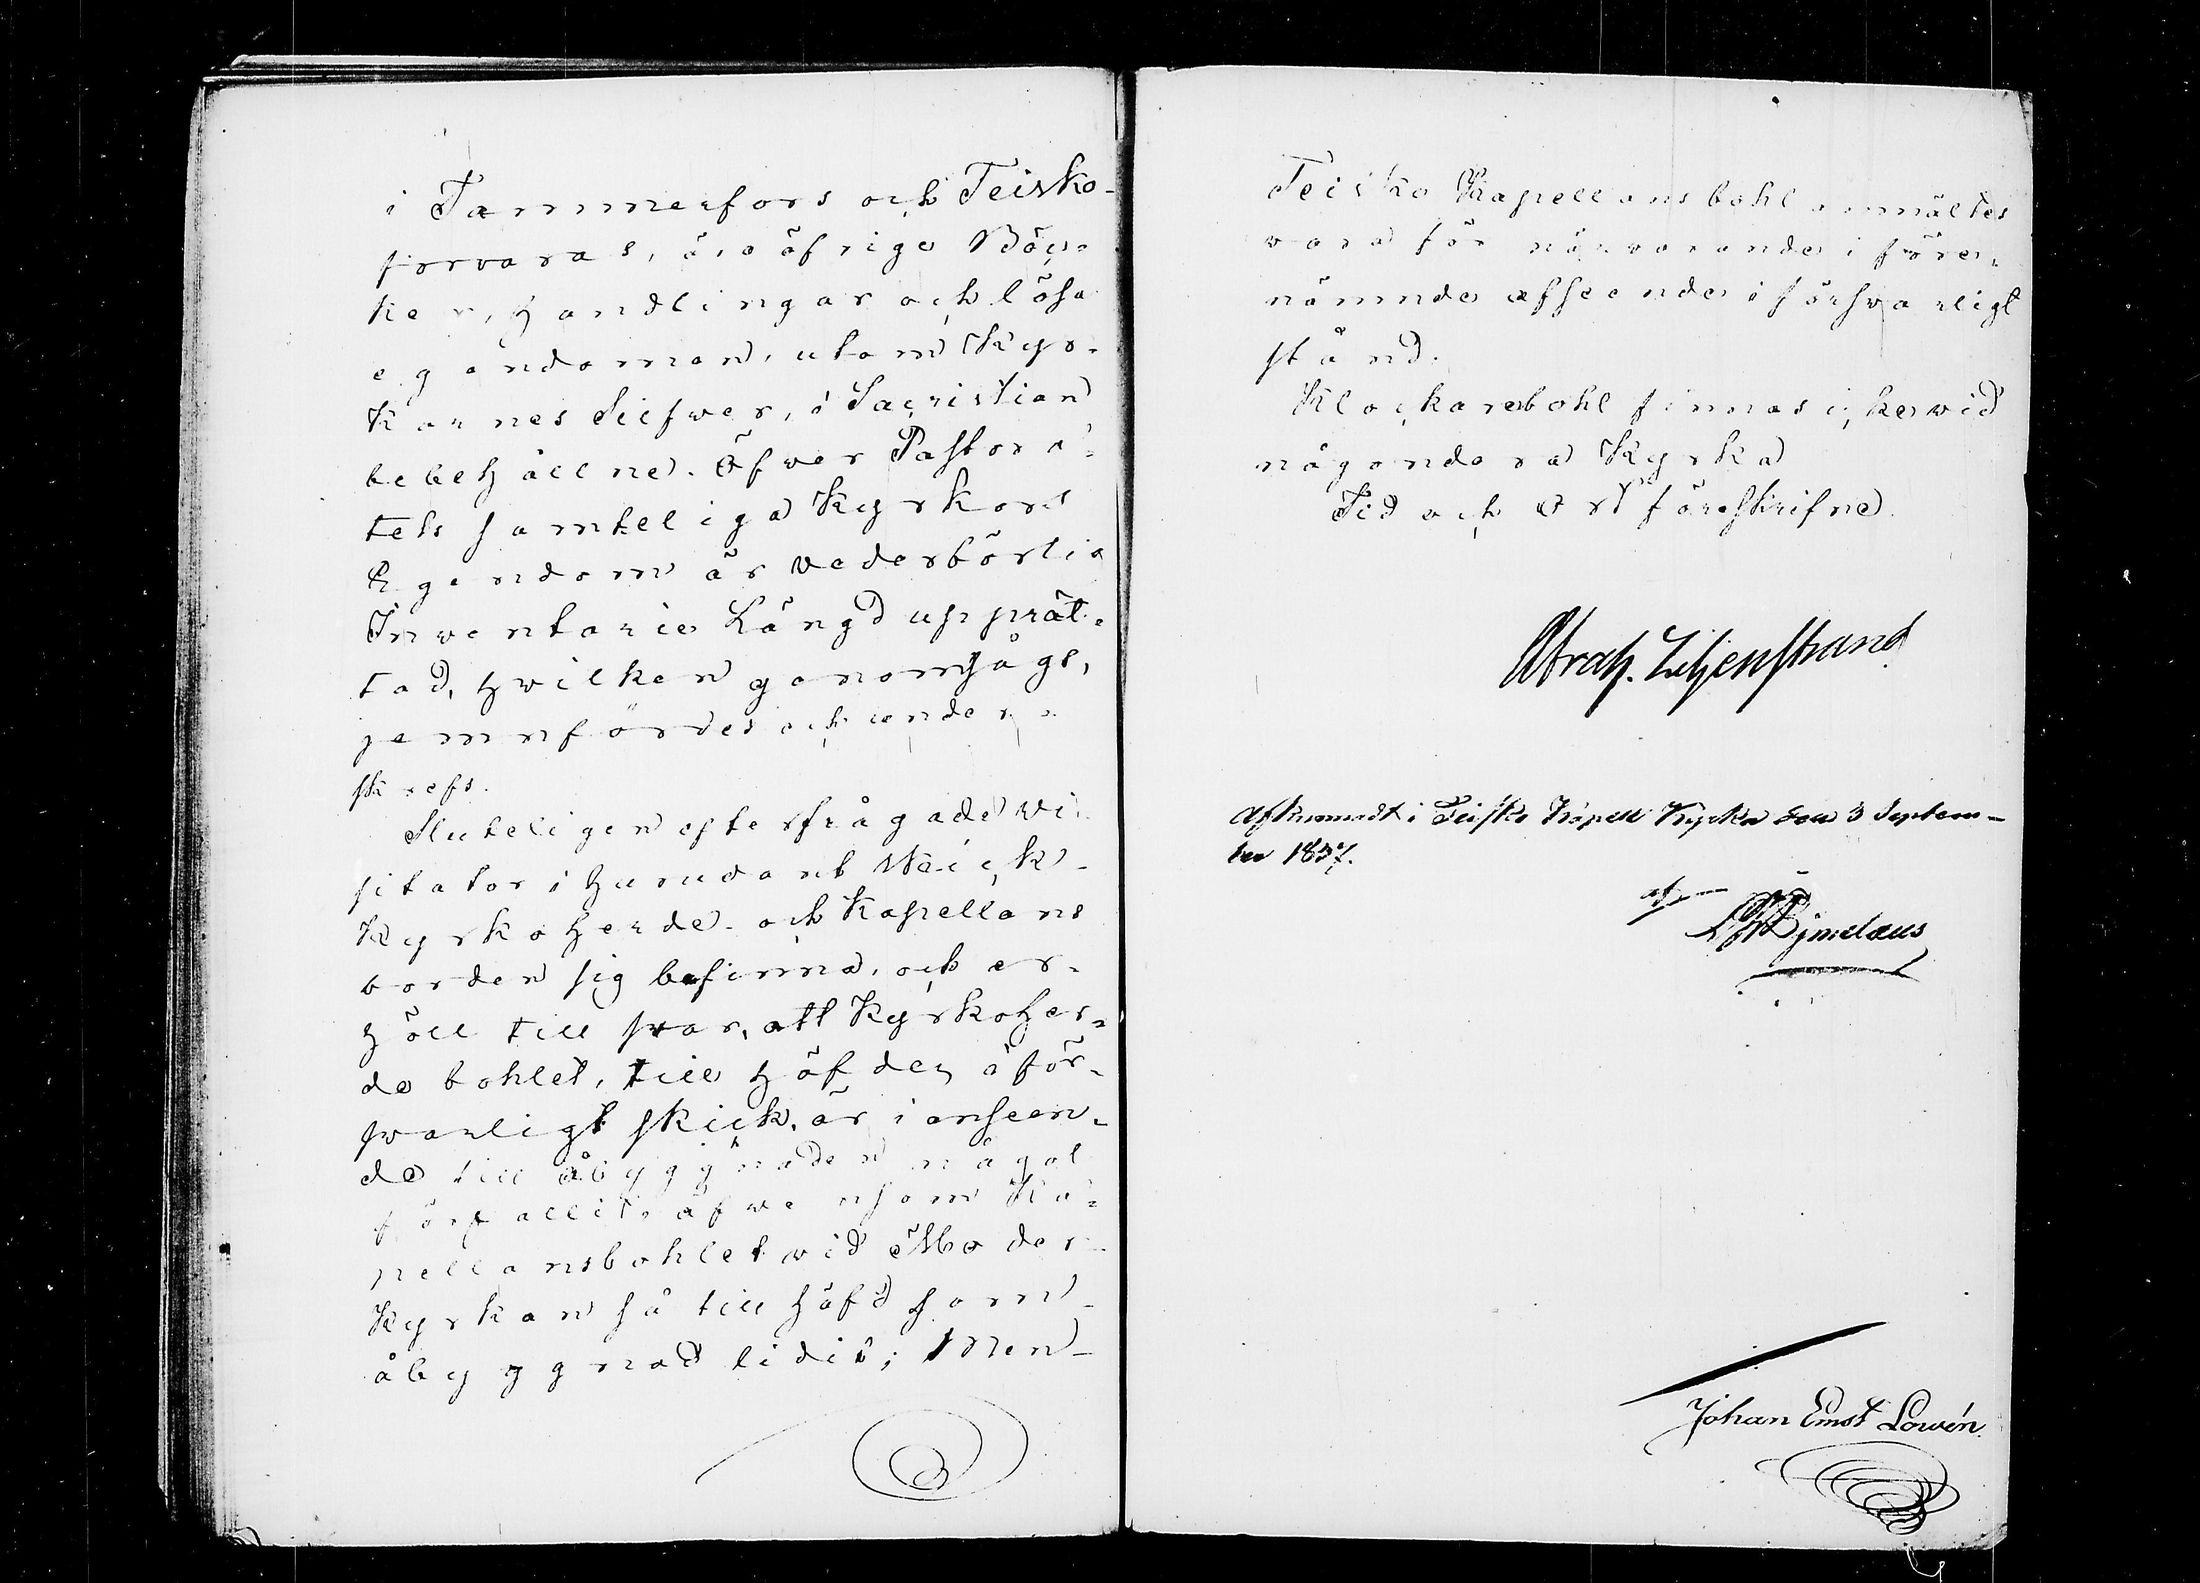 i Tammerfors och Teisko
förvaras, äro öfrige Böc=
ker, Handlingar och lösa
egendomen, utom Kyr=
karnes Silfwer, i Sacristian
bebehållne. Öfwer Pastora=
tets samteliga Kyrkors
Egendom är vederbörlig
Inventarie Längd upprät=
tad, hvilken genomsågs,
jemnfördes och under=
skrefs.
Sluteligen efterfrågade Vi=
sitator i hurudant skick
Kyrkoherde- och Kapellans
borden sig befinna, och er=
höll till svar, att Kyrkoher=
de bohlet, till Häfden i för=
svarligt skick, är i anseen=
de till åbyggnaden något
förfallit, äfwensom Ka=
pellansbohlet wid Moder
Kyrkan så till Häfd som
åbyggnad lidit; Men
Teisko Kapellansbohl anmältes
vara för närvarande i fören=
nämnde afseende i försvarligt
stånd.
Klockarebohl finnas icke wid
någondera Kyrka
Tid och Ort föreskrifne.
Abrah. Liljenstrand
Afkunnadt i Teisko Kapell Kyrka den 3 Septem-
ber 1837.
af
Bjmelæus
Johan Ernst Lowén.